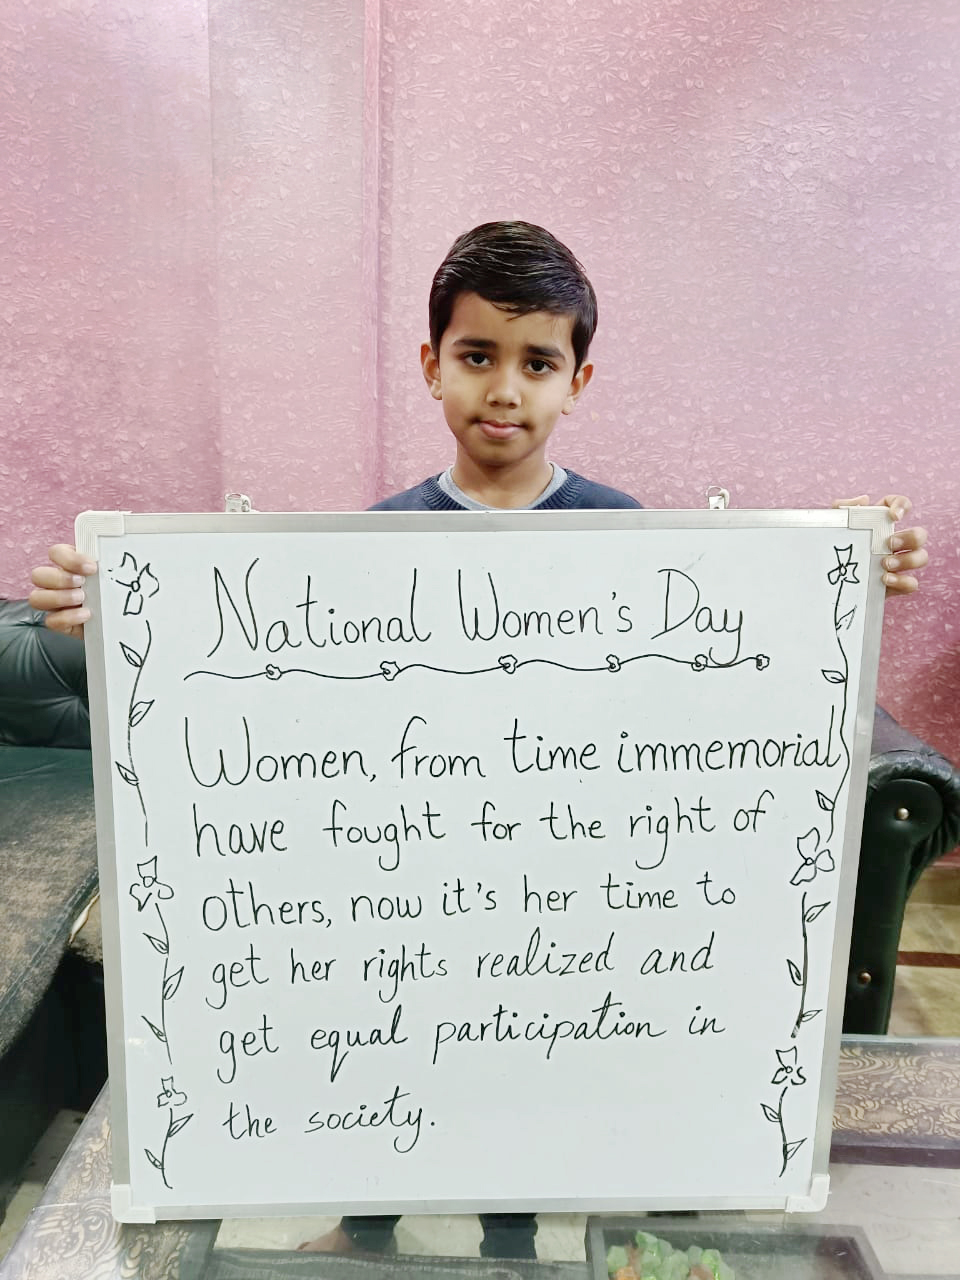 National Women's Day
Women, from time immemorial
have fought for the right of
others, now it's her time to
get her rights realized and
get equal participation in
the society.